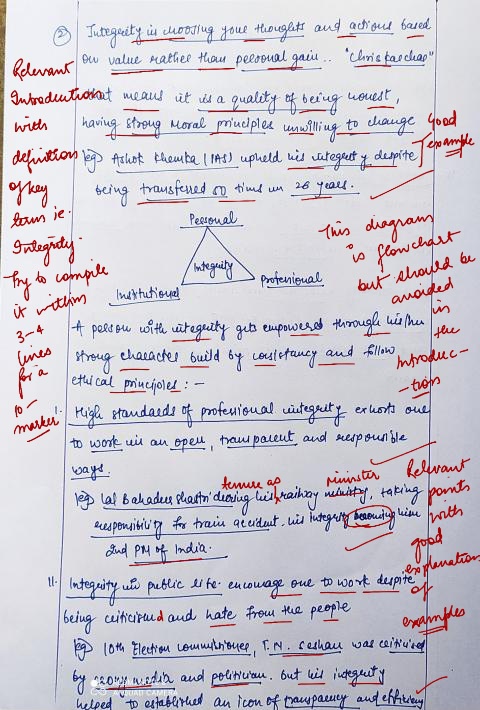 ② Integrity is choosing your thoughts and actions based
on value rather than personal gain.. "Chris
that means it is a quality of being honest,
having strong Moral principles unwilling to change
(eg) Ashok Khemka (IAS) upheld his integrity despite
being transferred 50 times in 26 years.
Good
example
Relevant
Introduction
with
definition
of key
term ie.
Integrity.
Try to compile
it within
3-4
lines
for a
10-
marker
Personal
Integrity
Institutional
Professional
This diagram
is flowchart
but should be
avoided
in
the
Introduc-
-tion
A person with integrity gets empowered through his/her
strong character build by cosistancy and follow
ethical principles :-
I. High standards of professional integrity exhorts one
to work in an open, transparent and responsible
ways.
tenure as
minister
(eg) Lal Bahadur Shastri during his railway ministry, taking
responsibility for train accident. his integrity him
2nd PM of India.
Relevant
points
with
good
explanation
of
examples
II. Integrity in public life encourage one to work despite
being criticismd and hate from the people
(eg) 10th Election commissioner, T.N. Seshan was criticised
by media and politician. but his integrity
helped to established an icon of transparency and efficiency
AI QUAD CAMERA